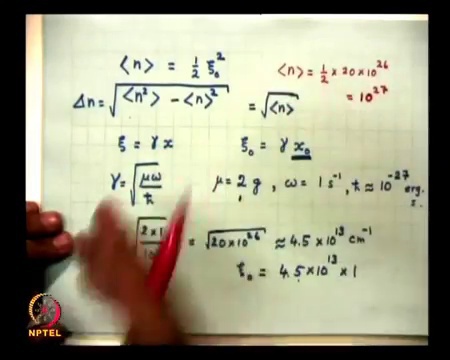 <n> = 1/2 ξ₀²
<n> = 1/2 × 20 × 10²⁶
= 10²⁷
Δn = √(<n²> − <n>²) = √<n>
ξ = γx ξ₀ = γ x₀
γ = √(μω/ħ) μ = 2 g, ω = 1 s⁻¹, ħ ≈ 10⁻²⁷ erg. s.
= √(20×10²⁶) ≈ 4.5 × 10¹³ cm⁻¹
ξ₀ = 4.5 × 10¹³ × 1
NPTEL